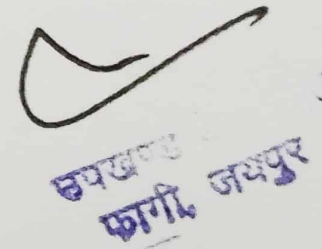 उपखण्ड
फागी, जयपुर